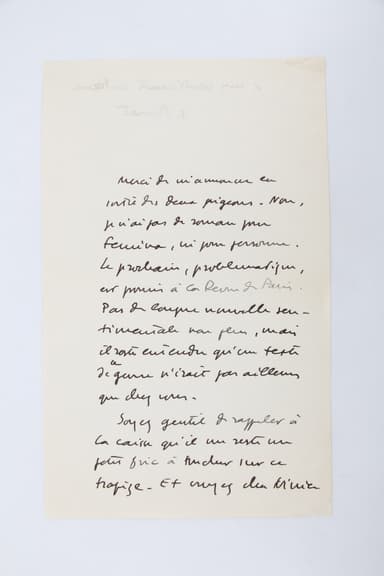 Merci de m'annoncer en
sortie des deux pigeons. Non,
je n'ai pas de roman pour
Femina, ni pour personne.
Le prochain, problématique,
est promis à La Revue de Paris.
Pas de longue nouvelle sen-
timentale non plus, mais
il reste entendu qu'un texte
de ce genre n'irait pas ailleurs
que chez vous.
Soyez gentil de rappeler à
la caisse qu'il me reste un
petit fric à toucher sur ce
trapèze. Et croyez cher